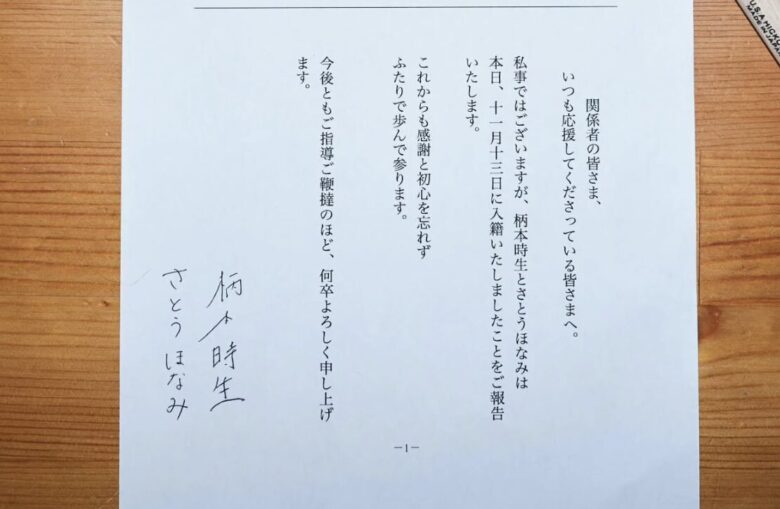 関係者の皆さま、
いつも応援してくださっている皆さまへ。
私事ではございますが、柄本時生とさとうほなみは
本日、十一月十三日に入籍いたしましたことをご報告
いたします。
これからも感謝と初心を忘れず
ふたりで歩んで参ります。
今後ともご指導ご鞭撻のほど、何卒よろしく申し上げ
ます。
柄本時生
さとうほなみ
—1—